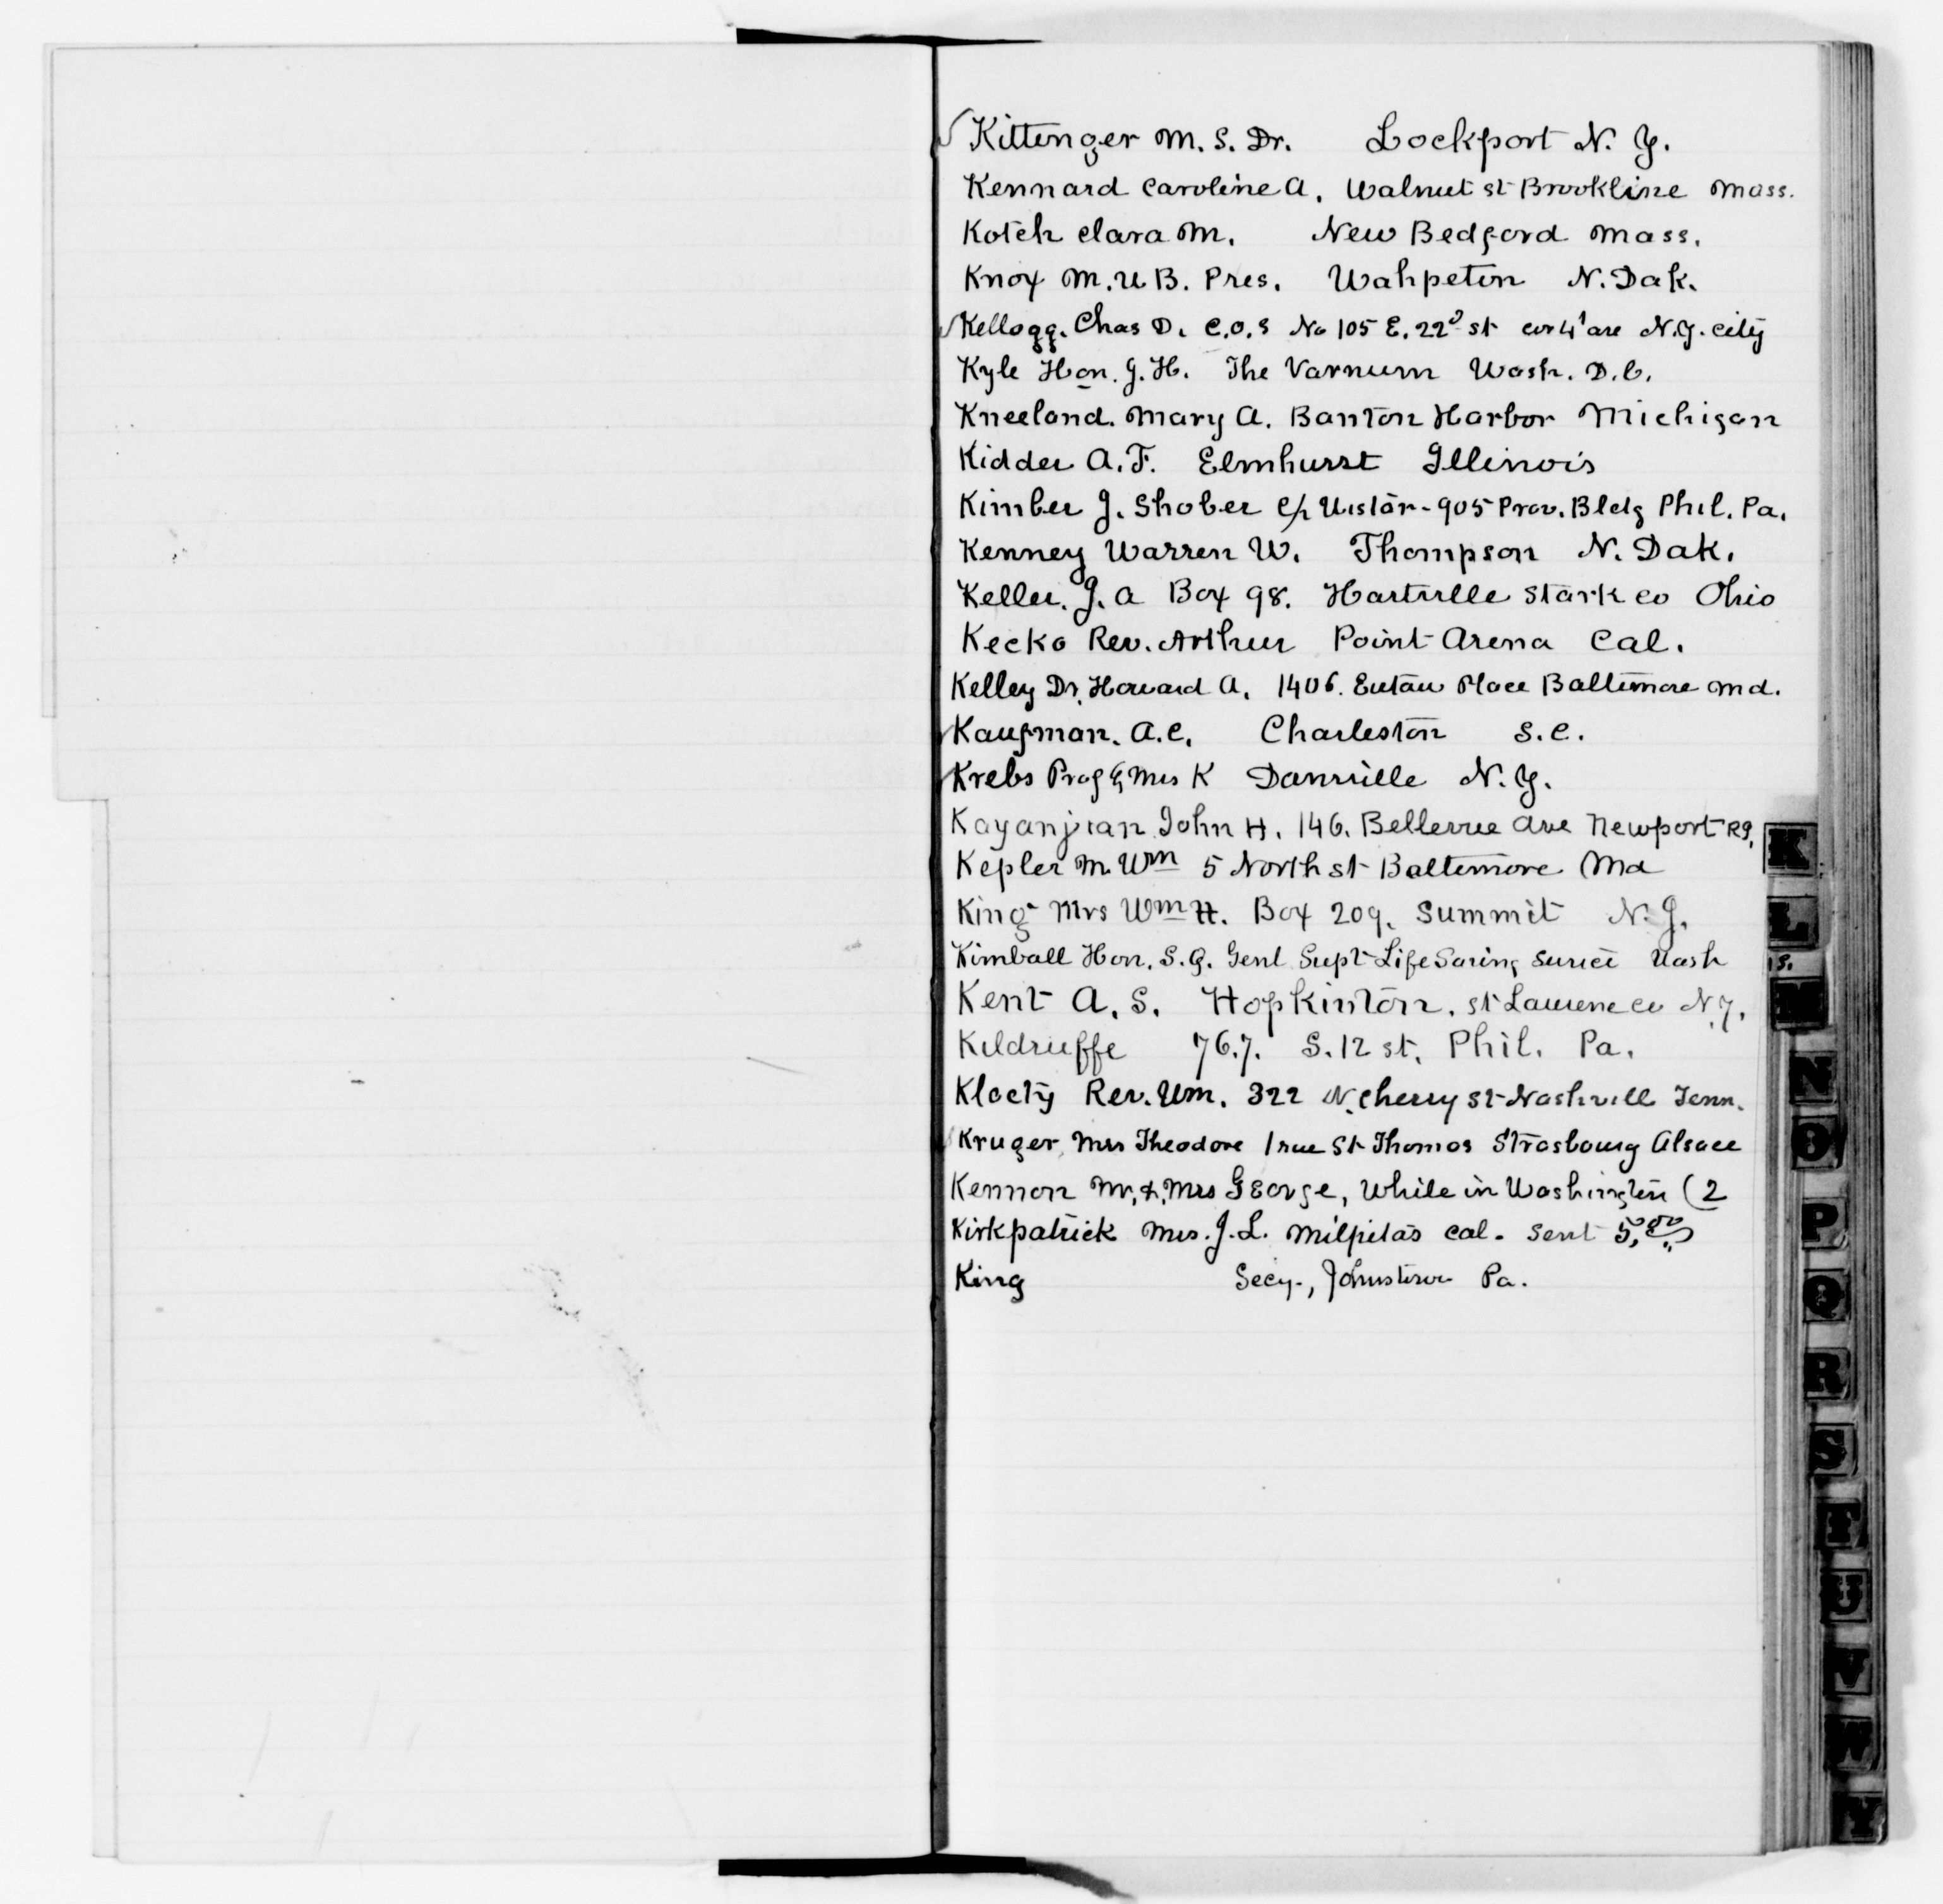 √Kittenger M. S. Dr. Lockport N. Y.
Kennard Caroline A. Walnut st Brookline Mass.
Kotch Clara M. New Bedford Mass.
Knox M. U B. Pres. Wahpeton N. Dak.
√Kellogg. Chas D. C.O.S No 105 E. 22d st cor 4' ave N.Y. City
Kyle Hon. J. H. The Varnum Wash. D.C.
Kneeland. Mary A. Banton Harbor Michigan
Kidder A. F. Elmhurst Illinois
Kimber J. Shober c/o Uistar - 905 Prov. Bldg Phil. Pa.
Kenney Warren W. Thompson N. Dak.
Keller. J. A Box 98. Hartville Stark co Ohio
Kecko Rev. Arthur Point Arena Cal.
Kelley Dr. Howard A. 1406. Eutaw Place Baltimore Md.
√Kaufman. A. C. Charleston S. C.
√Krebs Prof & Mrs K Dansville N. Y.
Kayanjian John H. 146. Bellevue Ave Newport RI.
Kepler M. Wm 5 North st Baltimore Md
King Mrs Wm H. Box 209. Summit N. J.
Kimball Hon. S. I. Genl Supt Life Saving Service Wash
Kent A. S. Hopkinton. St Lawrence co N.Y.
Kildrieffe 767. S. 12 st. Phil. Pa.
Rev. Wm. 322 N. Cherry St Nashvill Tenn.
√Kruger Mrs Theodore 1 rue St Thomas Strasbourg Alsace
Kennon Mr. & Mrs George, While in Washington (2
Kirkpatrick Mrs. J. L. Milpitas Cal. Sent 5,
King Secy-, Johnstown Pa.
K
L
IS.
M
N
O
P
Q
R
S
T
U
V
W
Y